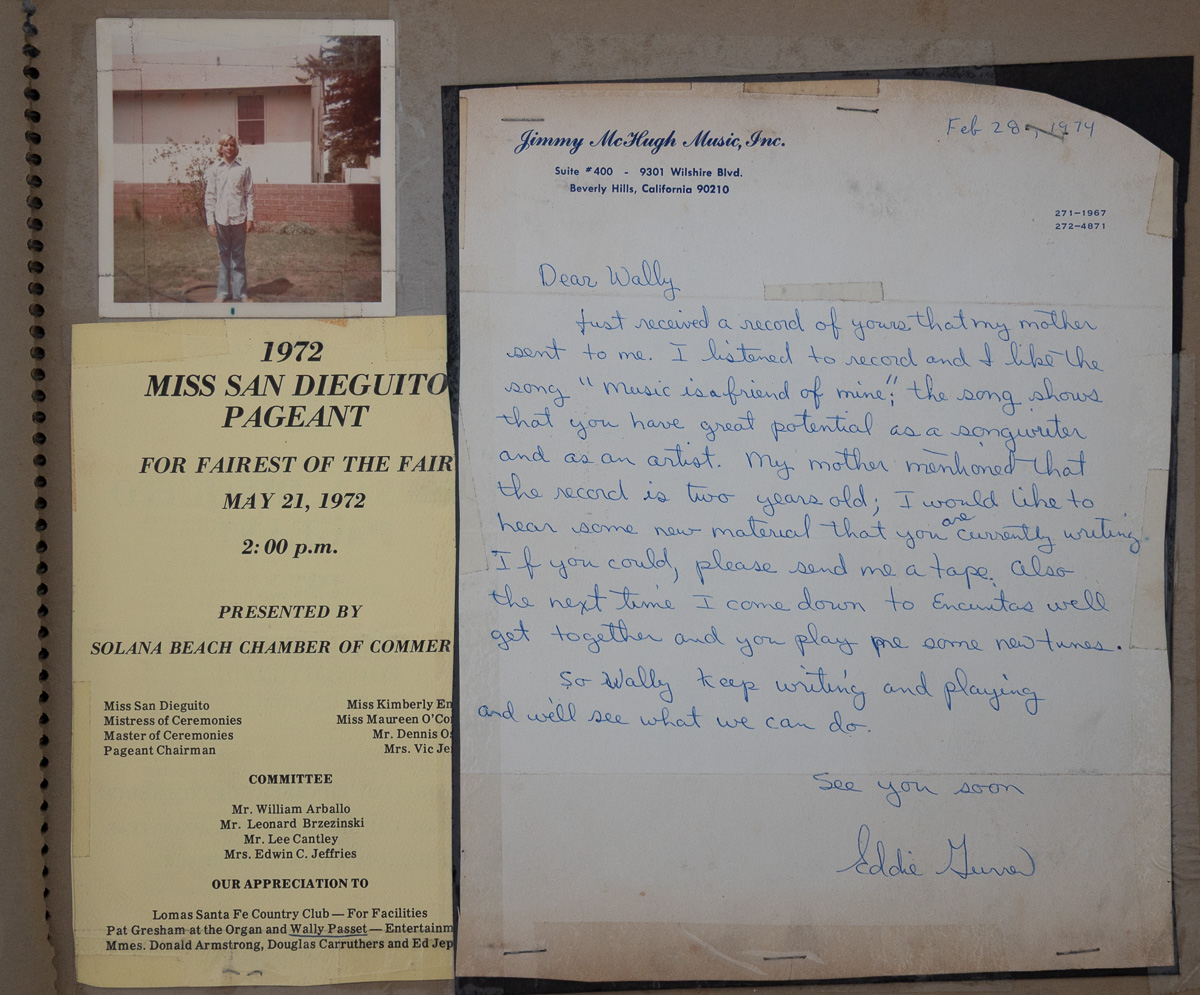 1972
MISS SAN DIEGUITO
PAGEANT
FOR FAIREST OF THE FAIR
MAY 21, 1972
2:00 p.m.
PRESENTED BY
SOLANA BEACH CHAMBER OF COMMER
Miss San Dieguito Miss Kimberly En
Mistress of Ceremonies Miss Maureen O'Co
Master of Ceremonies Mr. Dennis O
Pageant Chairman Mrs. Vic Je
COMMITTEE
Mr. William Arballo
Mr. Leonard Brzezinski
Mr. Lee Cantley
Mrs. Edwin C. Jeffries
OUR APPRECIATION TO
Lomas Santa Fe Country Club — For Facilities
Pat Gresham at the Organ and Wally Passet — Entertainm
Mmes. Donald Armstrong, Douglas Carruthers and Ed Jep
Feb 28, 1974
Jimmy McHugh Music, Inc.
Suite #400 - 9301 Wilshire Blvd.
Beverly Hills, California 90210
271-1967
272-4871
Dear Wally
Just received a record of yours that my mother
sent to me. I listened to record and I like the
song "Music is a friend of mine"; the song shows
that you have great potential as a songwriter
and as an artist. My mother mentioned that
the record is two years old; I would like to
hear some new material that you are currently writing.
If you could, please send me a tape. Also
the next time I come down to Encinitas well
get together and you play me some new tunes.
So Wally keep writing and playing
and we'll see what we can do.
See you soon
Eddie